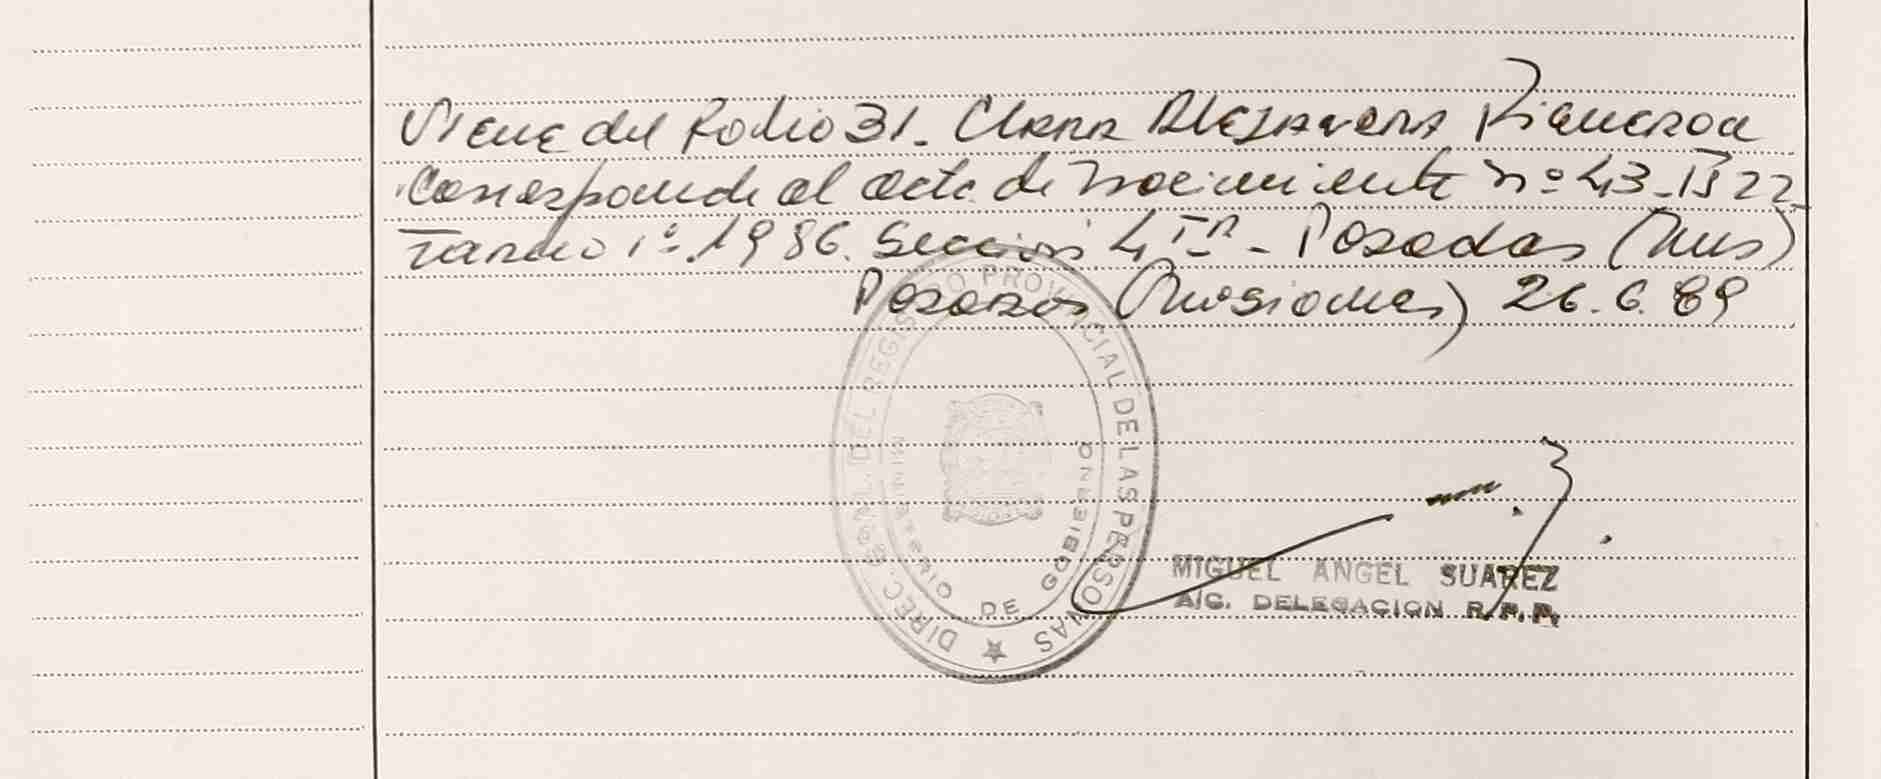 Viene del Folio 31_ Clara Alejandra Figueroa
Corresponde al acta de nacimiento nº 43_ Iº 22_
Tomo 1º. 1986. Sección 4ta_ Posadas (Mns)
Posadas (Misiones) 26.6.89
DIREC. GRAL. DEL REGISTRO PROVINCIAL DE LAS PERSONAS
MINISTERIO DE GOBIERNO
MIGUEL ANGEL SUAREZ
A/C. DELEGACION R.P.P.